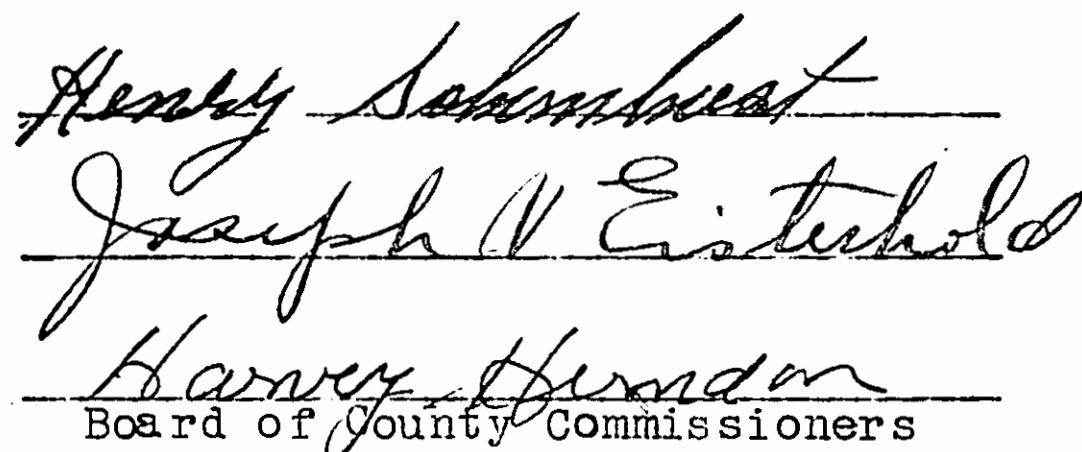 Henry
Joseph V Eisterhold
Harvey Herndon
Board of County Commissioners